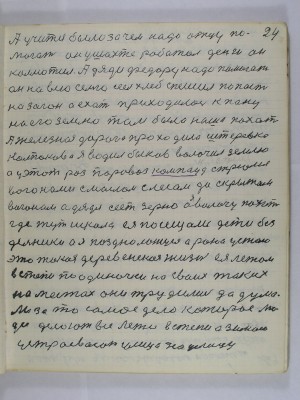 А учити было зачем надо отцу по- 24
могат он ушахте работал денги он
колиотил А дяди федору надо помагат
он на вио сеяго сеи хлеб спешил попахт
на загон а ехат приходилос к пану
на его землю там было наше пахат
А железная дорога проходила
я водил быков волочил землю
а у этот раз паровоз компауд строился
вогонами смаслом слесам да скрыпом
вогонам а дядя сеет зерно а волочу пахот
где тут школа ея посищали дети без
делники а я поздно ложуся а рано устаю
это такая деревенская жизн ея летом
встепи по одиночки на своих таких
на местах они трудилис да дума-
ли за то самое дело которые лю
ди делают все лето встепи а зимаю
устраевают улица на улицу